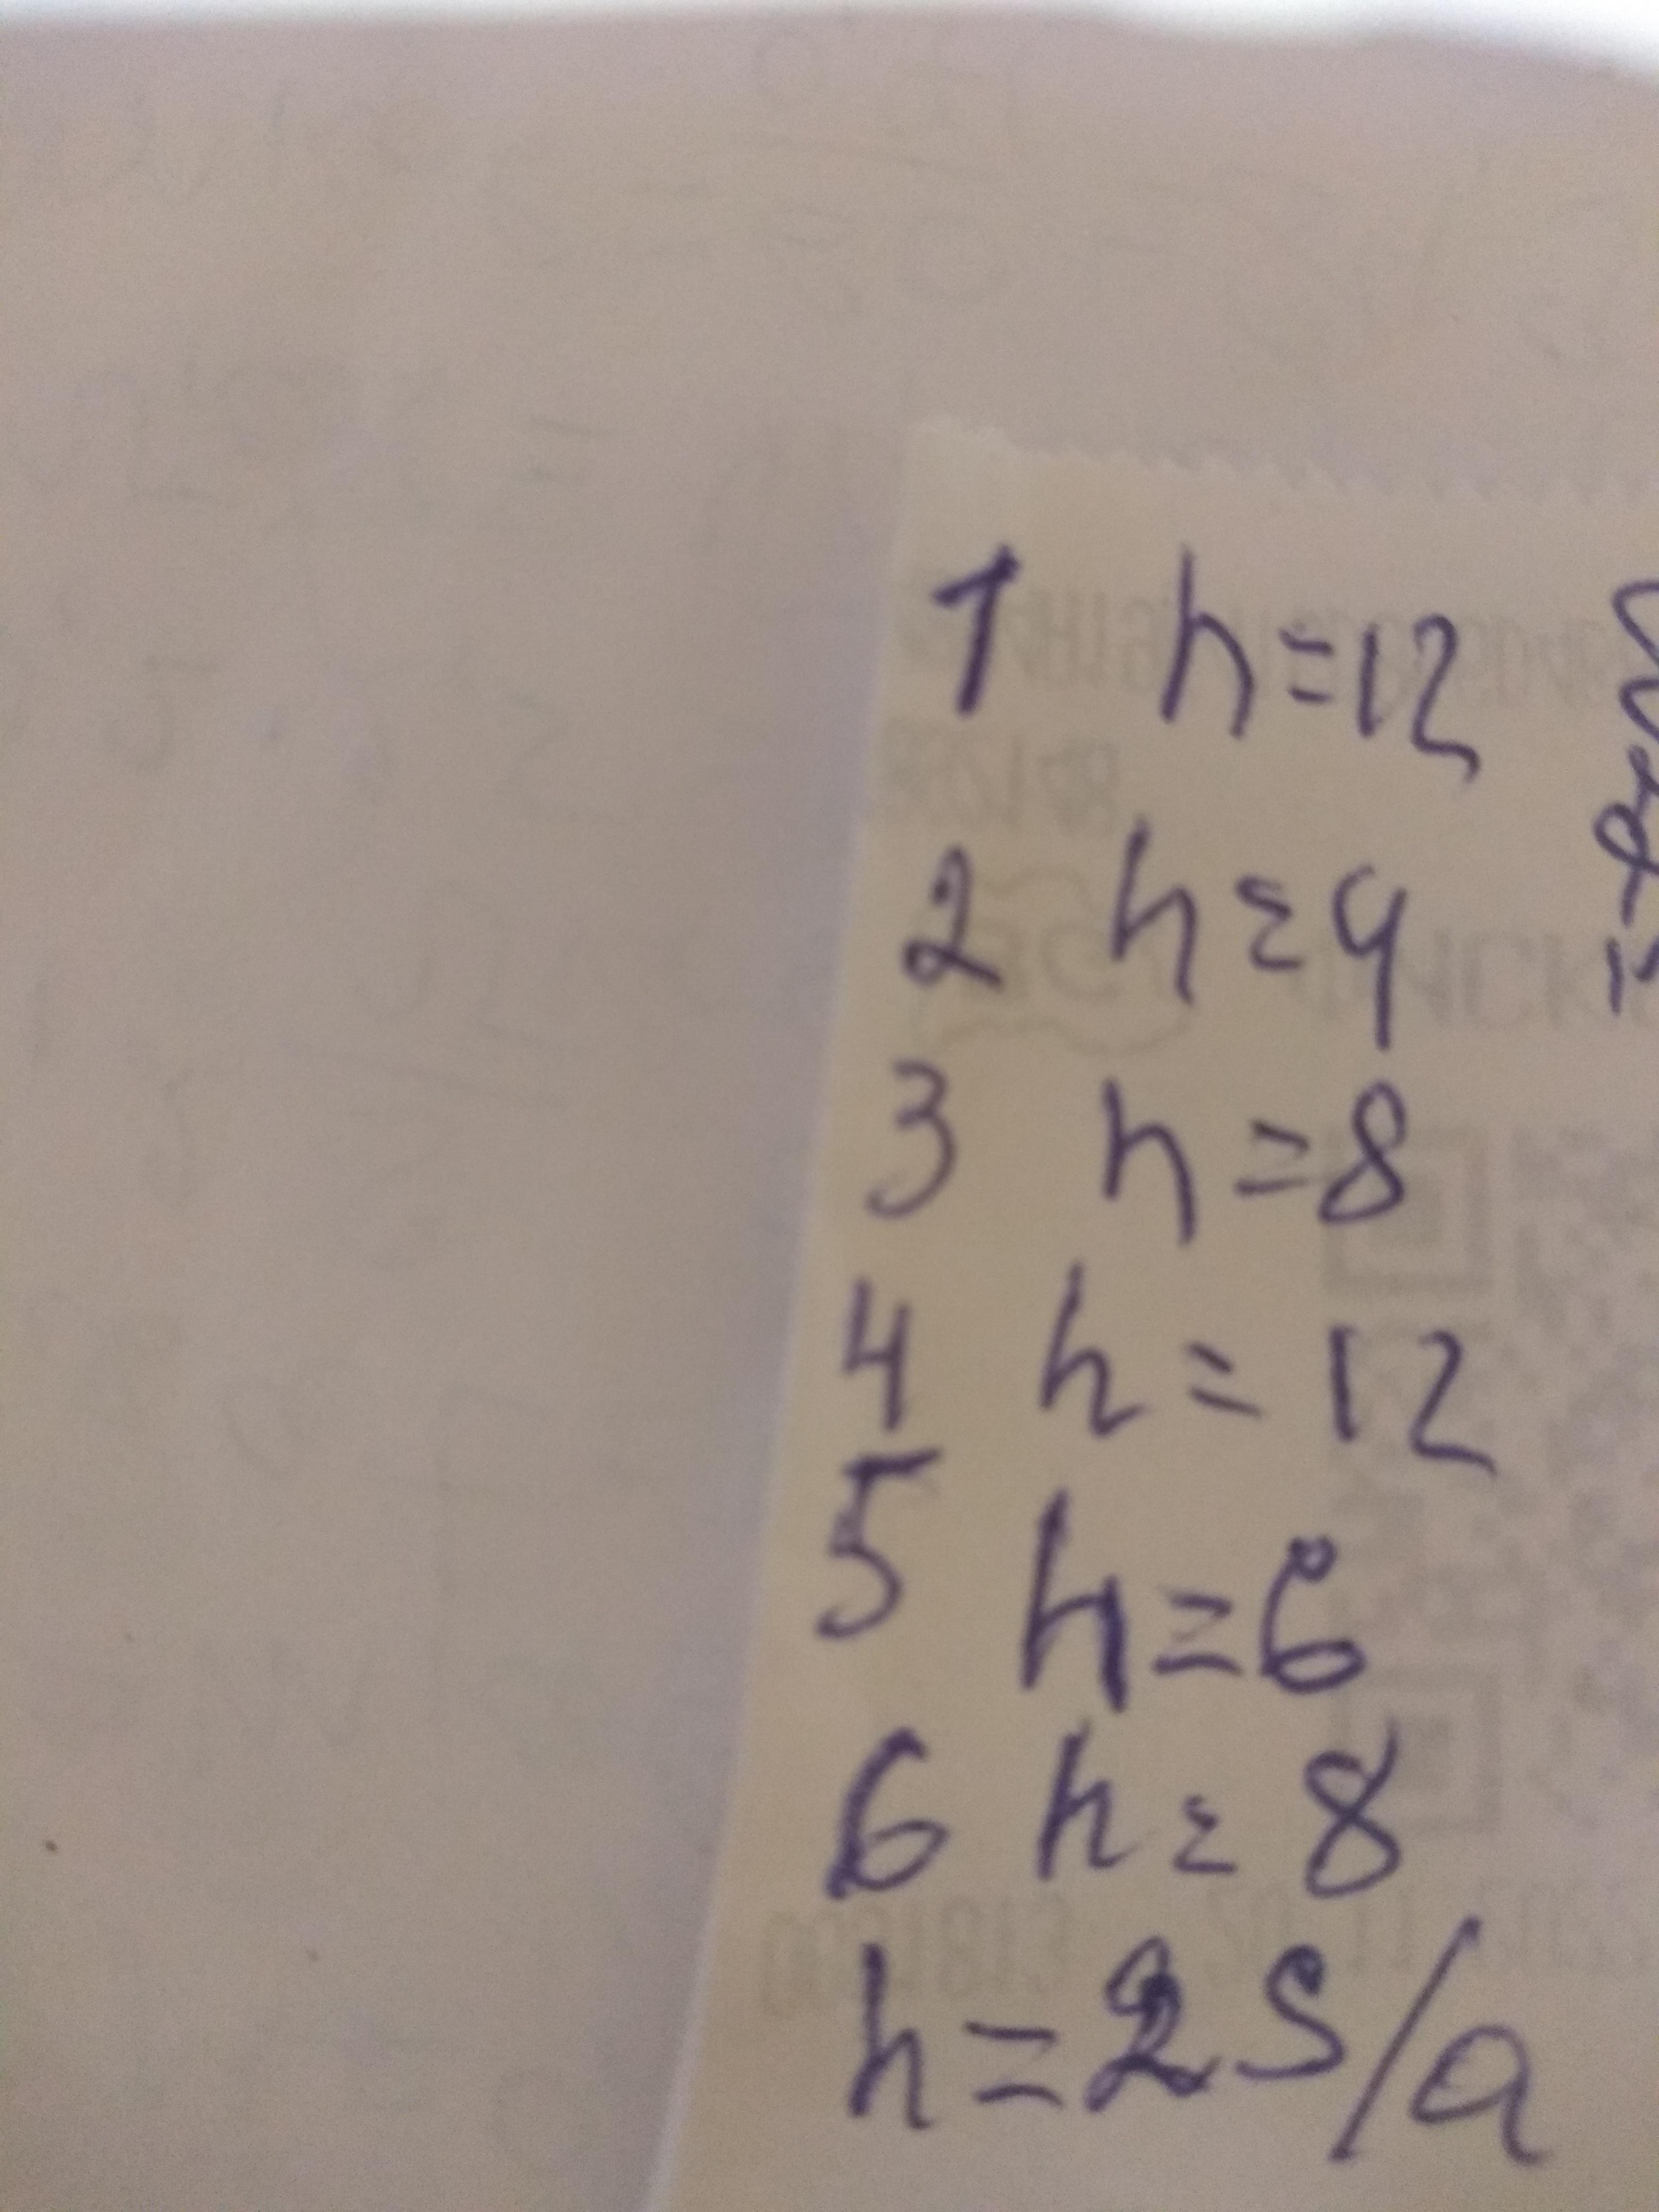 1 h=12
2 h=9
3 h=8
4 h=12
5 h=6
6 h=8
h=2S/a